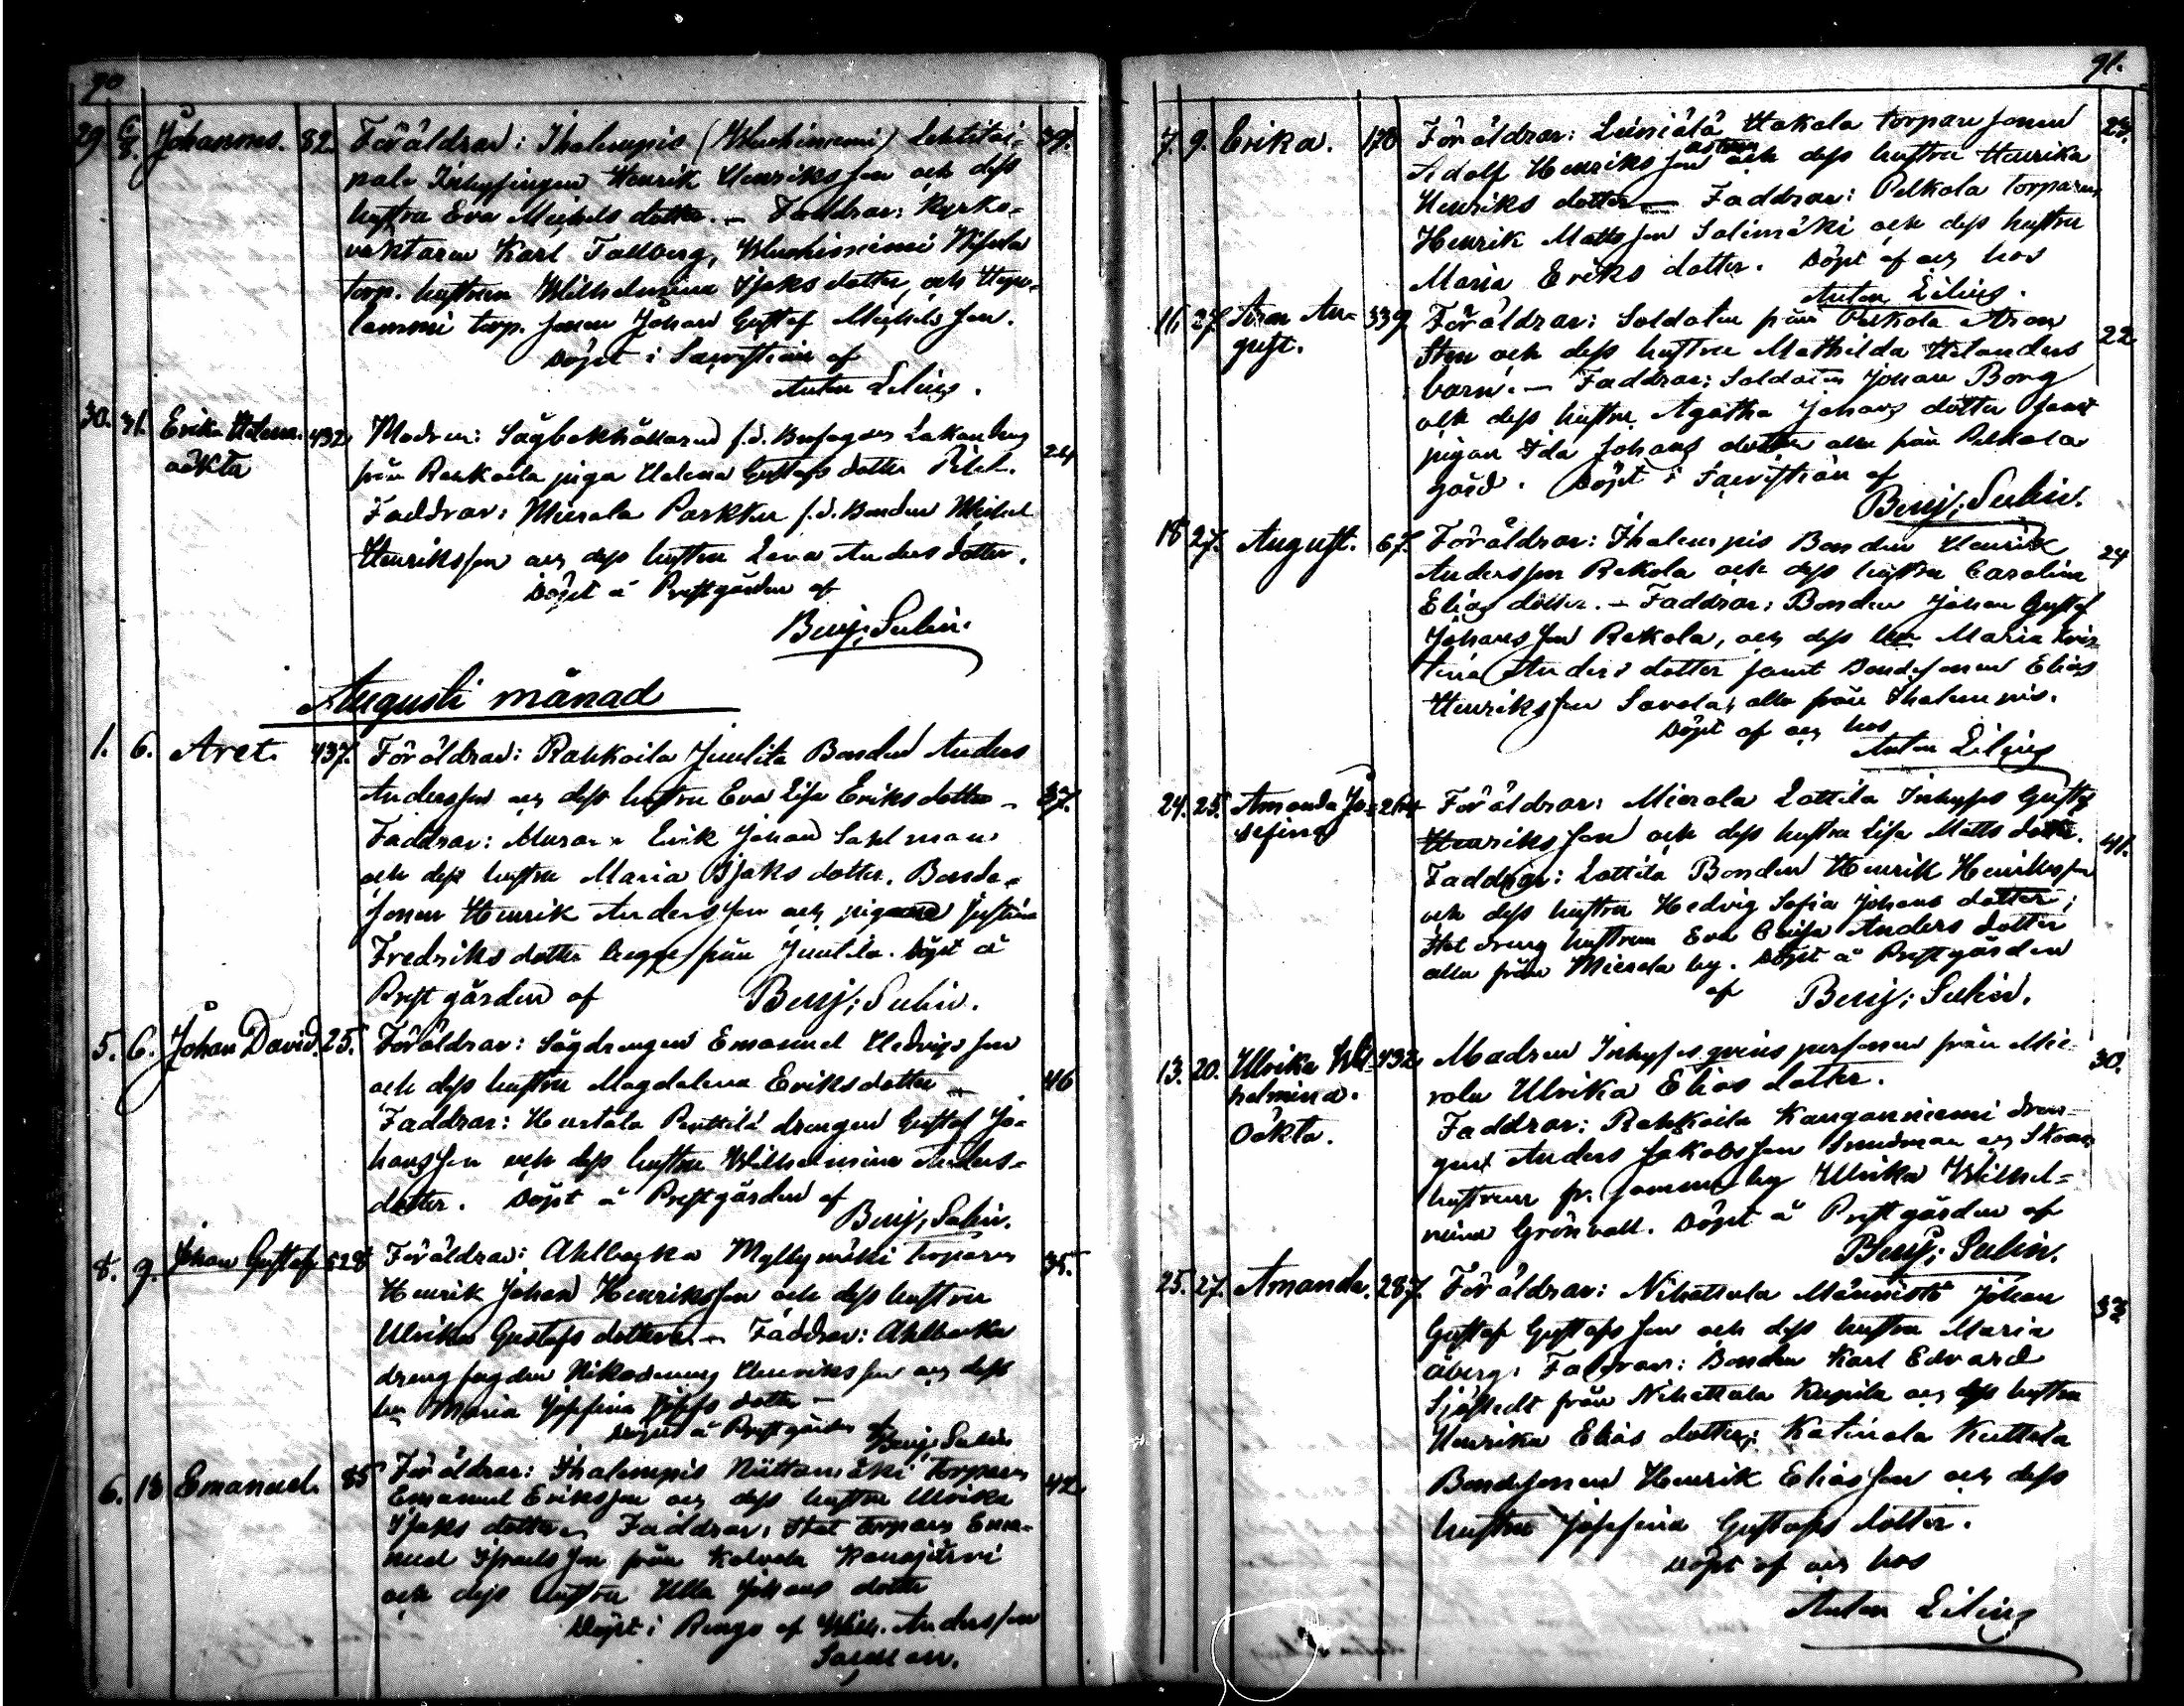 90
29. 6/8. Johannes. 82. Föräldrar: Ihalempis (Wluchiniemi) Lehtitai- 39.
pale Inhysingen Henrik Henriksson och dess
hustru Eva Michels dotter. – Faddrar: Kyrko-
vaktaren Karl Tallberg,
torp. hustrun Wilhelmina Isaks dotter, och
lammi torp. sonen Johan Gustaf Michels son.
Döpt i af
Anton Lilius.
30. 31. Erika Helena. 432. Modren: Sågbokhållaren f.d. Lakanberg 24
oäkta från Rahkoila piga Helena Gustafs dotter
Faddrar: Mierola Parkku f.d. Bonden Michel
Henriksson och dess hustru Lena Anders dotter.
Döpt å Prestgården af
Benj: Sulin.
Augusti månad
1. 6. Aret. 437. Föräldrar: Rahkoila Juulila Bonden Anders
Andersson och dess hustru Eva Lisa Eriksdotter – 37.
Faddrar: Murar. Erik Johan Sahlman
och dess hustru Maria Isaks dotter. Bonde-
sonen Henrik Andersson och pigan Justina
Fredriks dotter begge från Juulila. Döpt å
Prestgården af Benj: Sulin.
5. 6. Johan David. 25. Föräldrar: Sågdrengen Emanuel Hedvigs son
och dess hustru Magdalena Eriksdotter – 46
Faddrar: Penttilä drengen Gustaf Jo-
hansson och dess hustru Wilhelmina Anders-
dotter. Döpt å Prestgården af
Benj: Sulin.
8. 9. Johan Gustaf 528 Föräldrar: Ahlbacka Myllymäki torparen 35.
Henrik Johan Henriksson och dess hustru
Ulrika Gustafs dotter. – Faddrar: Ahlbacka
drengfogden Nikodemus Henriksson och dess
hu Maria Josefina Josefs dotter –
Döpt å Prestgården af Benj: Sulin
6. 13 Emanuel. 85 Föräldrar: Ihalempis Niittamäki Torparen 42
Emanuel Eriksson och dess hustru Ulrika
Isaks dotter – Faddrar: Stat torparen Ema-
nuel Israelsson från Kalvola Kanajärvi
och dess hustru Ulla Johans dotter
Döpt i Rengo af Wilh. Andersson
Salman.
91.
7. 9. Erika. 170 Föräldrar: Leiniälä Hakala torpare sonen 23.
Adolf Henriksson och dess hustru Henrika
Henriks dotter – Faddrar: Pelkola torparen
Henrik Mattsson Salimäki och dess hustru
Maria Eriks dotter. Döpt af och hos
Anton Lilius.
16 27. Aron Au- 339. Föräldrar: Soldaten från Pelkola Aron 22
gust. Sten och dess hustru Mathilda Helanders
barn. – Faddrar: Soldaten Johan Borg
och dess hustru Agatha Johans dotter samt
pigan Ida Johans dotter alla från Pelkola
gård. Döpt i af
Benj: Sulin.
18 27. August. 67. Föräldrar: Ihalempis Bonden Henrik 24
Andersson Rekola och dess hustru Carolina
Elias dotter. – Faddrar: Bonden Johan Gustaf
Johansson Rekola, och dess hu Maria Kris-
tina Anders dotter samt Bondesonen Elias
Henriksson Savola, alla från Ihalempis.
Döpt af och hos
Anton Lilius
24. 25. Amanda Jo- 264 Föräldrar: Mierola Lottila Inhyses Gustaf
sefina Henriksson och dess hustru Lisa Matts dotter. 41.
Faddrar: Lottila Bonden Henrik Henriksson
och dess hustru Hedvig Sofia Johans dotter;
Stat dreng hustrun Eva Anders dotter
alla från Mierola by. Döpt å Prestgården
af Benj: Sulin.
13. 20. Ulrika Wil- 432 Modren Inhyses qvins personen från Mie- 30.
helmina. rola Ulrika Elias dotter.
Oäkta. Faddrar: Rahkoila Kanganniemi dren-
gen Anders Jakobsson och
hustrun fr. samma by Ulrika Wilhel-
mina Grönvall. Döpt å Prestgården af
Benj: Sulin.
25. 27. Amanda. 287. Föräldrar: Nihattula Männistö Johan 33
Gustaf Gustafsson och dess hustru Maria
Åberg. Faddrar: Bonden Karl Edvard
Sjöstedt från Nihattula Kupila och dess hustru
Henrika Elias dotter; Katinala Kuttila
Bondesonen Henrik Eliasson och dess
hustru Josefina Gustafs dotter.
Döpt af och hos
Anton Lilius